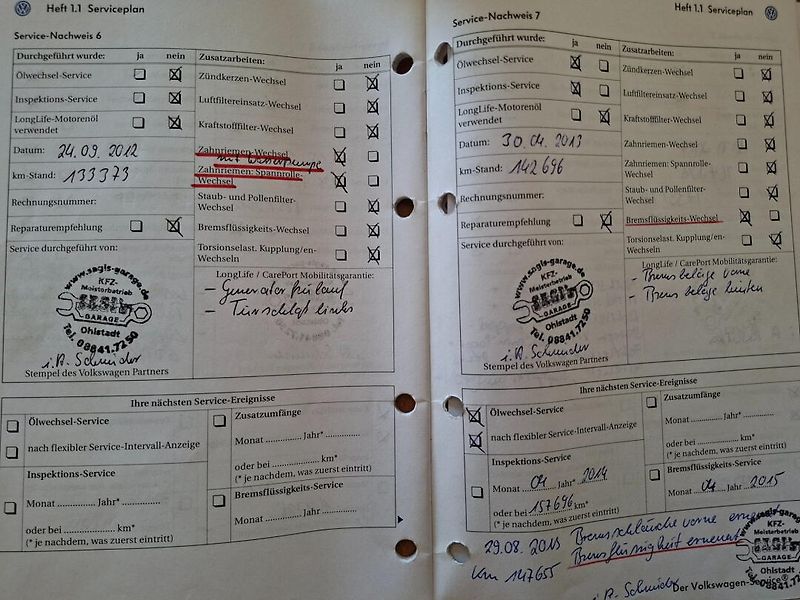 Heft 1.1 Serviceplan
Service-Nachweis 6
Durchgeführt wurde: ja nein
Ölwechsel-Service
Inspektions-Service
LongLife-Motorenöl
verwendet
Datum: 24.09.2012
km-Stand: 133373
Rechnungsnummer:
Reparaturempfehlung
Service durchgeführt von:
www.sagis-garage.de
KFZ-
Meisterbetrieb
SAGIS
GARAGE
Ohlstadt
Tel. 08841.7250
i.A. Schneider
Stempel des Volkswagen Partners
Zusatzarbeiten: ja nein
Zündkerzen-Wechsel
Luftfiltereinsatz-Wechsel
Kraftstofffilter-Wechsel
Zahnriemen-Wechsel
mit Wasserpumpe
Zahnriemen: Spannrolle-
Wechsel
Staub- und Pollenfilter-
Wechsel
Bremsflüssigkeits-Wechsel
Torsionselast. Kupplung/en-
Wechseln
LongLife / CarePort Mobilitätsgarantie:
- Generator freilauf
- links
Ihre nächsten Service-Ereignisse
Ölwechsel-Service
nach flexibler Service-Intervall-Anzeige
Inspektions-Service
Monat ............ Jahr* ..................
oder bei .................. km*
(* je nachdem, was zuerst eintritt)
Zusatzumfänge
Monat ............ Jahr* ............
oder bei .................. km*
(* je nachdem, was zuerst eintritt)
Bremsflüssigkeits-Service
Monat ............ Jahr ............
Heft 1.1 Serviceplan
Service-Nachweis 7
Durchgeführt wurde: ja nein
Ölwechsel-Service
Inspektions-Service
LongLife-Motorenöl
verwendet
Datum: 30.04.2013
km-Stand: 142696
Rechnungsnummer:
Reparaturempfehlung
Service durchgeführt von:
www.sagis-garage.de
KFZ-
Meisterbetrieb
SAGIS
GARAGE
Ohlstadt
Tel. 08841.7250
i.A. Schneider
Stempel des Volkswagen Partners
Zusatzarbeiten: ja nein
Zündkerzen-Wechsel
Luftfiltereinsatz-Wechsel
Kraftstofffilter-Wechsel
Zahnriemen-Wechsel
Zahnriemen: Spannrolle-
Wechsel
Staub- und Pollenfilter-
Wechsel
Bremsflüssigkeits-Wechsel
Torsionselast. Kupplung/en-
Wechseln
LongLife / CarePort Mobilitätsgarantie:
- Bremsbeläge vorne
- Bremsbeläge hinten
Ihre nächsten Service-Ereignisse
Ölwechsel-Service
nach flexibler Service-Intervall-Anzeige
Inspektions-Service
Monat 04 Jahr* 2014
oder bei 157696 km*
(* je nachdem, was zuerst eintritt)
Zusatzumfänge
Monat ............ Jahr* ............
oder bei .................. km*
(* je nachdem, was zuerst eintritt)
Bremsflüssigkeits-Service
Monat 04 Jahr 2015
29.08.2013 Bremsschläuche vorne
Bremsflüssigkeit erneuert
km 147655
i.A. Schneider
sagis-garage.
KFZ-
Meisterbetrieb
SAGIS
GARAGE
Ohlstadt
08841.7
Der Volkswagen-Service®